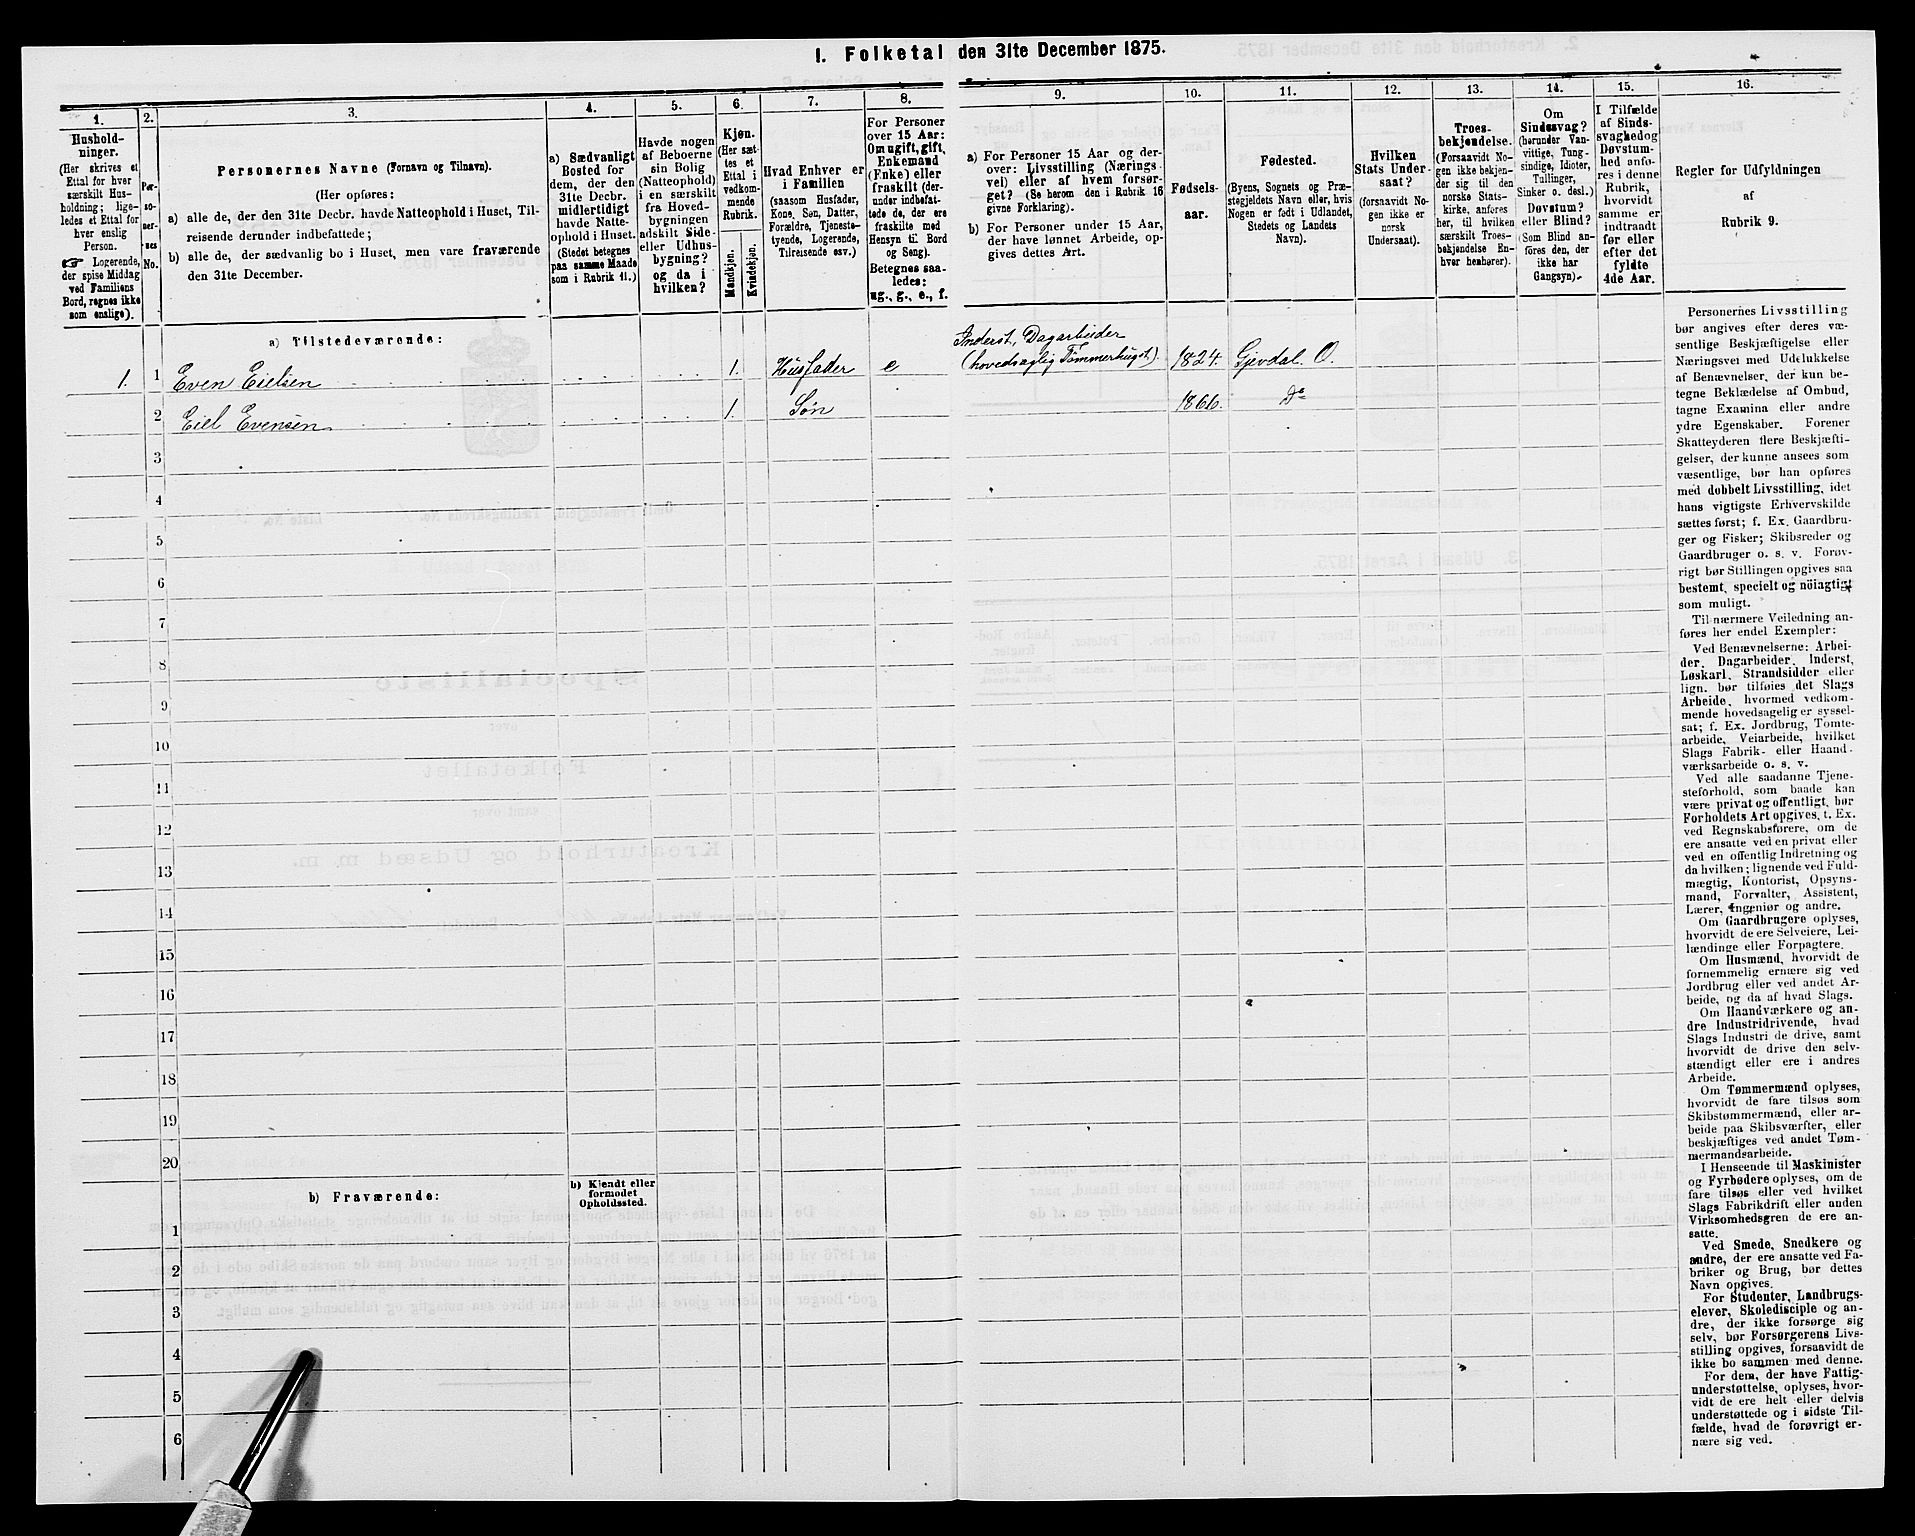 I. Folketal den 31te December 1875.
1.
Hushold-
ninger.
(Her skrives et
Ettal for hver
særskilt Hus-
holdning; lige-
ledes et Ettal for
hver enslig
Person.
☞ Logerende,
der spise Middag
ved Familiens
Bord, regnes ikke
som enslige).
2.
Per-
so-
ner-
nes
No.
3.
Personernes Navne (Fornavn og Tilnavn).
(Her opføres:
a) alle de, der den 31te Decbr. havde Natteophold i Huset, Til-
reisende derunder indbefattede;
b) alle de, der sædvanlig bo i Huset, men vare fraværende
den 31te December.
4.
a) Sædvanligt
Bosted for
dem, der den
31te Decbr.
midlertidigt
havde Natte-
ophold i Huset.
(Stedet betegnes
paa samme Maade
som i Rubrik 11.)
5.
Havde nogen
af Beboerne
sin Bolig
(Natteophold)
i en særskilt
fra Hoved-
bygningen
adskilt Side-
eller Udhus-
bygning?
og da i
hvilken?
6.
Kjøn.
(Her sæt-
tes et
Ettal i
vedkom-
mende
Rubrik.
Mandkjøn.
Kvindekjøn.
7.
Hvad Enhver er
i Familien
(saasom Husfader,
Kone, Søn, Datter,
Forældre, Tjeneste-
tyende, Logerende,
Tilreisende osv.)
8.
For Personer
over 15 Aar:
Om ugift, gift,
Enkemand
(Enke) eller
fraskilt (der-
under indbefat-
tede de, der ere
fraskilte med
Hensyn til Bord
og Seng).
Betegnes saa-
ledes:
ug., g., e., f.
9.
a) For Personer 15 Aar og der-
over: Livsstilling (Nærings-
vei) eller af hvem forsør-
get? (Se herom den i Rubrik 16
givne Forklaring).
b) For Personer under 15 Aar,
der have lønnet Arbeide, op-
gives dettes Art.
10.
Fødsels-
aar.
11.
Fødested.
(Byens, Sognets og Præ-
stegjeldets Navn eller, hvis
Nogen er født i Udlandet,
Stedets og Landets
Navn).
12.
Hvilken
Stats Under-
saat?
(forsaavidt No-
gen ikke er
norsk
Undersaat).
13.
Troes-
bekjendelse.
(Forsaavidt No-
gen ikke bekjen-
der sig til den
norske Stats-
kirke, anføres
her, til hvilken
særskilt Troes-
bekjendelse En-
hver henhører).
14.
Om
Sindssvag?
(herunder Van-
vittige, Tung-
sindige, Idioter,
Tullinger,
Sinker o. desl.)
Døvstum?
eller Blind?
(Som Blind an-
føres den, der
ikke har
Gangsyn).
15.
I Tilfælde
af Sinds-
svaghed og
Døvstum-
hed anfø-
res i denne
Rubrik,
hvorvidt
samme er
indtraadt
før eller
efter det
fyldte
4de Aar.
16.
Regler for Udfyldningen
af
Rubrik 9.
a) Tilstedeværende:
1. 1 Even Eielsen 1. Husfader e Inderst, Dagarbeider
(hovedsaglig Tømmerhugst). 1824. Gjevdal. O.
2 Eiel Evensen 1. Søn 1866. Do
3
4
5
6
7
8
9
10
11
12
13
14
15
16
17
18
19
20
b) Fraværende:
b) Kjendt eller
formodet
Opholdssted.
1
2
3
4
5
6
Personernes Livsstilling
bør angives efter deres væ-
sentlige Beskjæftigelse eller
Næringsvei med Udelukkelse
af Benævnelser, der kun be-
tegne Beklædelse af Ombud,
tagne Examina eller andre
ydre Egenskaber. Forener
Skatteyderen flere Beskjæfti-
gelser, der kunne ansees som
væsentlige, bør han opføres
med dobbelt Livsstilling, idet
hans vigtigste Erhvervskilde
sættes først; f. Ex. Gaardbru-
ger og Fisker; Skibsreder og
Gaardbruger o. s. v. Forøv-
rigt bør Stillingen opgives saa
bestemt, specielt og nöiagtigt
som muligt.
Til nærmere Veiledning an-
føres her endel Exempler:
Ved Benævnelserne: Arbei-
der, Dagarbeider, Inderst,
Løskarl, Strandsidder eller
lign. bør tilføies det Slags
Arbeide, hvormed vedkom-
mende hovedsagelig er syssel-
sat; f. Ex. Jordbrug, Tomte-
arbeide, Veiarbeide, hvilket
Slags Fabrik- eller Haand-
værksarbeide o. s. v.
Ved alle saadanne Tjene-
steforhold, som baade kan
være privat og offentligt, bør
Forholdets Art opgives, t. Ex.
ved Regnskabsførere, om de
ere ansatte ved en privat eller
ved en offentlig Indretning og
da hvilken; lignende ved Fuld-
mægtig, Kontorist, Opsyns-
mand, Forvalter, Assistent,
Lærer, Ingeniør og andre.
Om Gaardbrugere oplyses,
hvorvidt de ere Selveiere, Lei-
lændinge eller Forpagtere.
Om Husmænd, hvorvidt de
fornemmelig ernære sig ved
Jordbrug eller ved andet Ar-
beide, og da af hvad Slags.
Om Haandværkere og an-
dre Industridrivende, hvad
Slags Industri de drive, samt
hvorvidt de drive den selv-
stændigt eller ere i andres
Arbeide.
Om Tømmermænd oplyses,
hvorvidt de fare tilsøs som
Skibstømmermænd, eller ar-
beide paa Skibsværfter, eller
beskjæftiges ved andet Tøm-
mermandsarbeide.
I Henseende til Maskinister
og Fyrbødere oplyses, om de
fare tilsøs eller ved hvilket
Slags Fabrikdrift eller anden
Virksomhedsgren de ere an-
satte.
Ved Smede, Snedkere og
andre, der ere ansatte ved Fa-
briker og Brug, bør dettes
Navn opgives.
For Studenter, Landbrugs-
elever, Skoledisciple og an-
dre, der ikke forsørge sig
selv, bør Forsørgerens Livs-
stilling opgives, forsaavidt de
ikke bo sammen med denne.
For dem, der have Fattig-
understøttelse, oplyses, hvor-
vidt de ere helt eller delvis
understøttede og i sidste Til-
fælde, hvad de forøvrigt er-
nære sig ved.